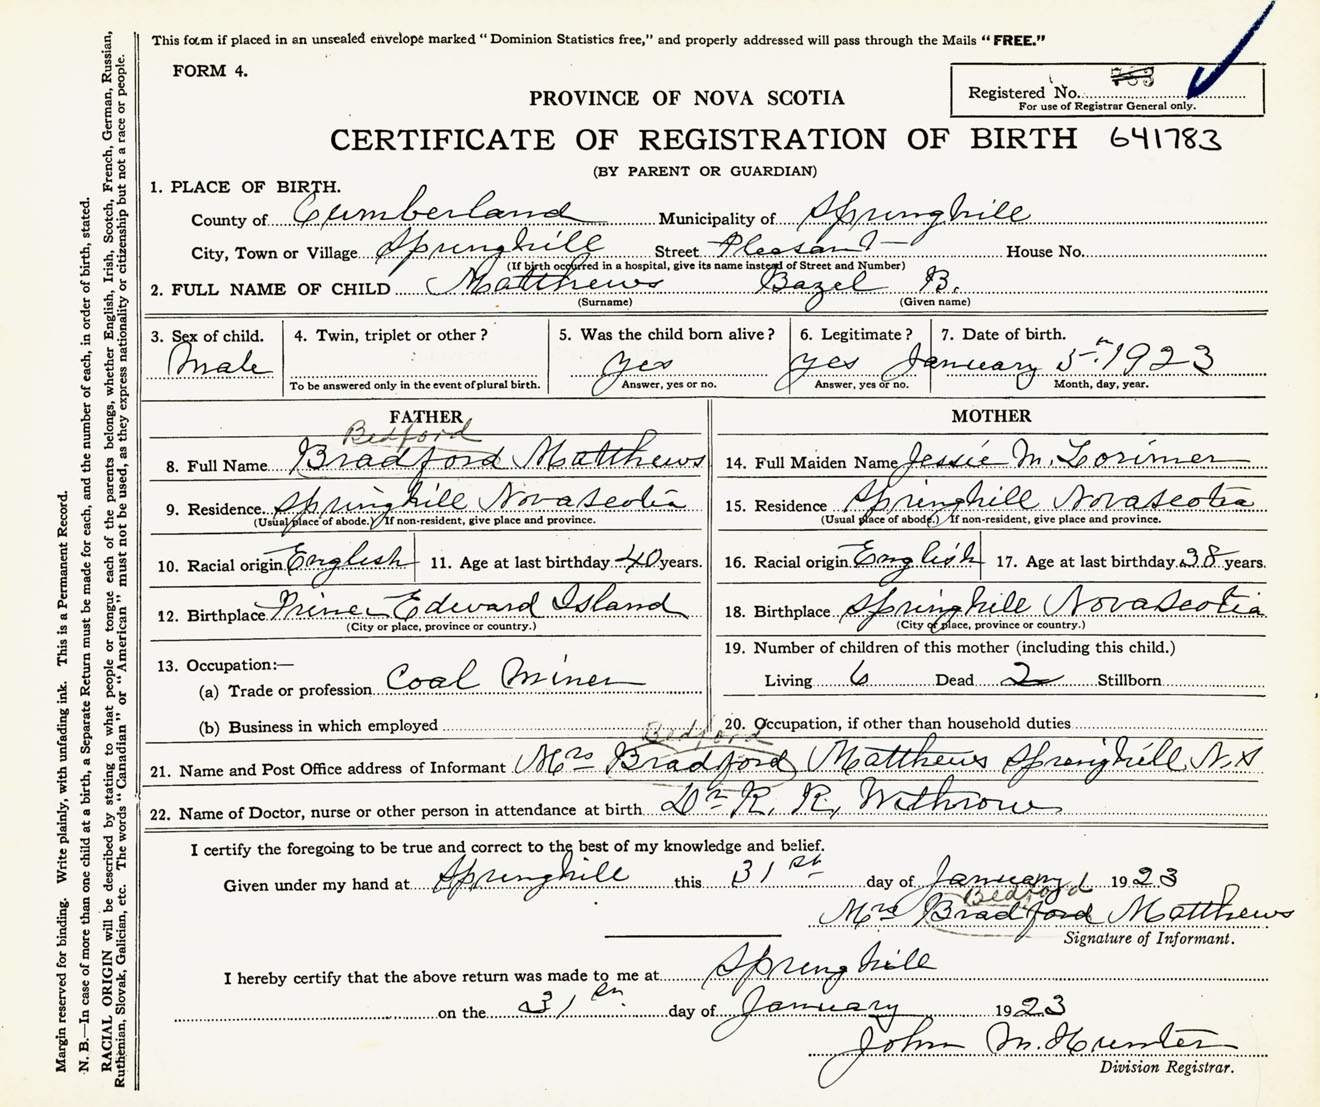 This form if placed in an unsealed envelope marked "Dominion Statistics free," and properly addressed will pass through the Mails "FREE."
FORM 4.
Registered No.
For use of Registrar General only.
PROVINCE OF NOVA SCOTIA
CERTIFICATE OF REGISTRATION OF BIRTH 641783
(BY PARENT OR GUARDIAN)
1. PLACE OF BIRTH.
County of Cumberland Municipality of Springhill
City, Town or Village Springhill Street Pleasant House No.
(If birth occurred in a hospital, give its name instead of Street and Number)
2. FULL NAME OF CHILD Matthews Bazel B.
(Surname) (Given name)
3. Sex of child. 4. Twin, triplet or other? 5. Was the child born alive? 6. Legitimate? 7. Date of birth.
Male yes yes January 5th 1923
To be answered only in the event of plural birth. Answer, yes or no. Answer, yes or no. Month, day, year.
FATHER MOTHER
Bedford
8. Full Name Bradford Matthews 14. Full Maiden Name Jessie M. Lorimer
9. Residence Springhill Nova Scotia 15. Residence Springhill Nova Scotia
(Usual place of abode.) If non-resident, give place and province. (Usual place of abode.) If non-resident, give place and province.
10. Racial origin English 11. Age at last birthday 40 years. 16. Racial origin English 17. Age at last birthday 38 years.
12. Birthplace Prince Edward Island 18. Birthplace Springhill Nova Scotia
(City or place, province or country.) (City or place, province or country.)
13. Occupation:— 19. Number of children of this mother (including this child.)
(a) Trade or profession Coal Miner Living 6 Dead 2 Stillborn
(b) Business in which employed 20. Occupation, if other than household duties
Bedford
21. Name and Post Office address of Informant Mrs Bradford Matthews Springhill N.S
22. Name of Doctor, nurse or other person in attendance at birth Dr R. R. Withrow
I certify the foregoing to be true and correct to the best of my knowledge and belief.
Given under my hand at Springhill this 31st day of January 1923
Bedford
Mrs Bradford Matthews
Signature of Informant.
I hereby certify that the above return was made to me at Springhill
on the 31 day of January 1923
John M. Hunter
Division Registrar.
Margin reserved for binding. Write plainly, with unfading ink. This is a Permanent Record.
N. B.—In case of more than one child at a birth, a Separate Return must be made for each, and the number of each, in order of birth, stated.
RACIAL ORIGIN will be described by stating to what people or tongue each of the parents belongs, whether English, Irish, Scotch, French, German, Russian,
Ruthenian, Slovak, Galician, etc. The words "Canadian" or "American" must not be used, as they express nationality or citizenship but not a race or people.